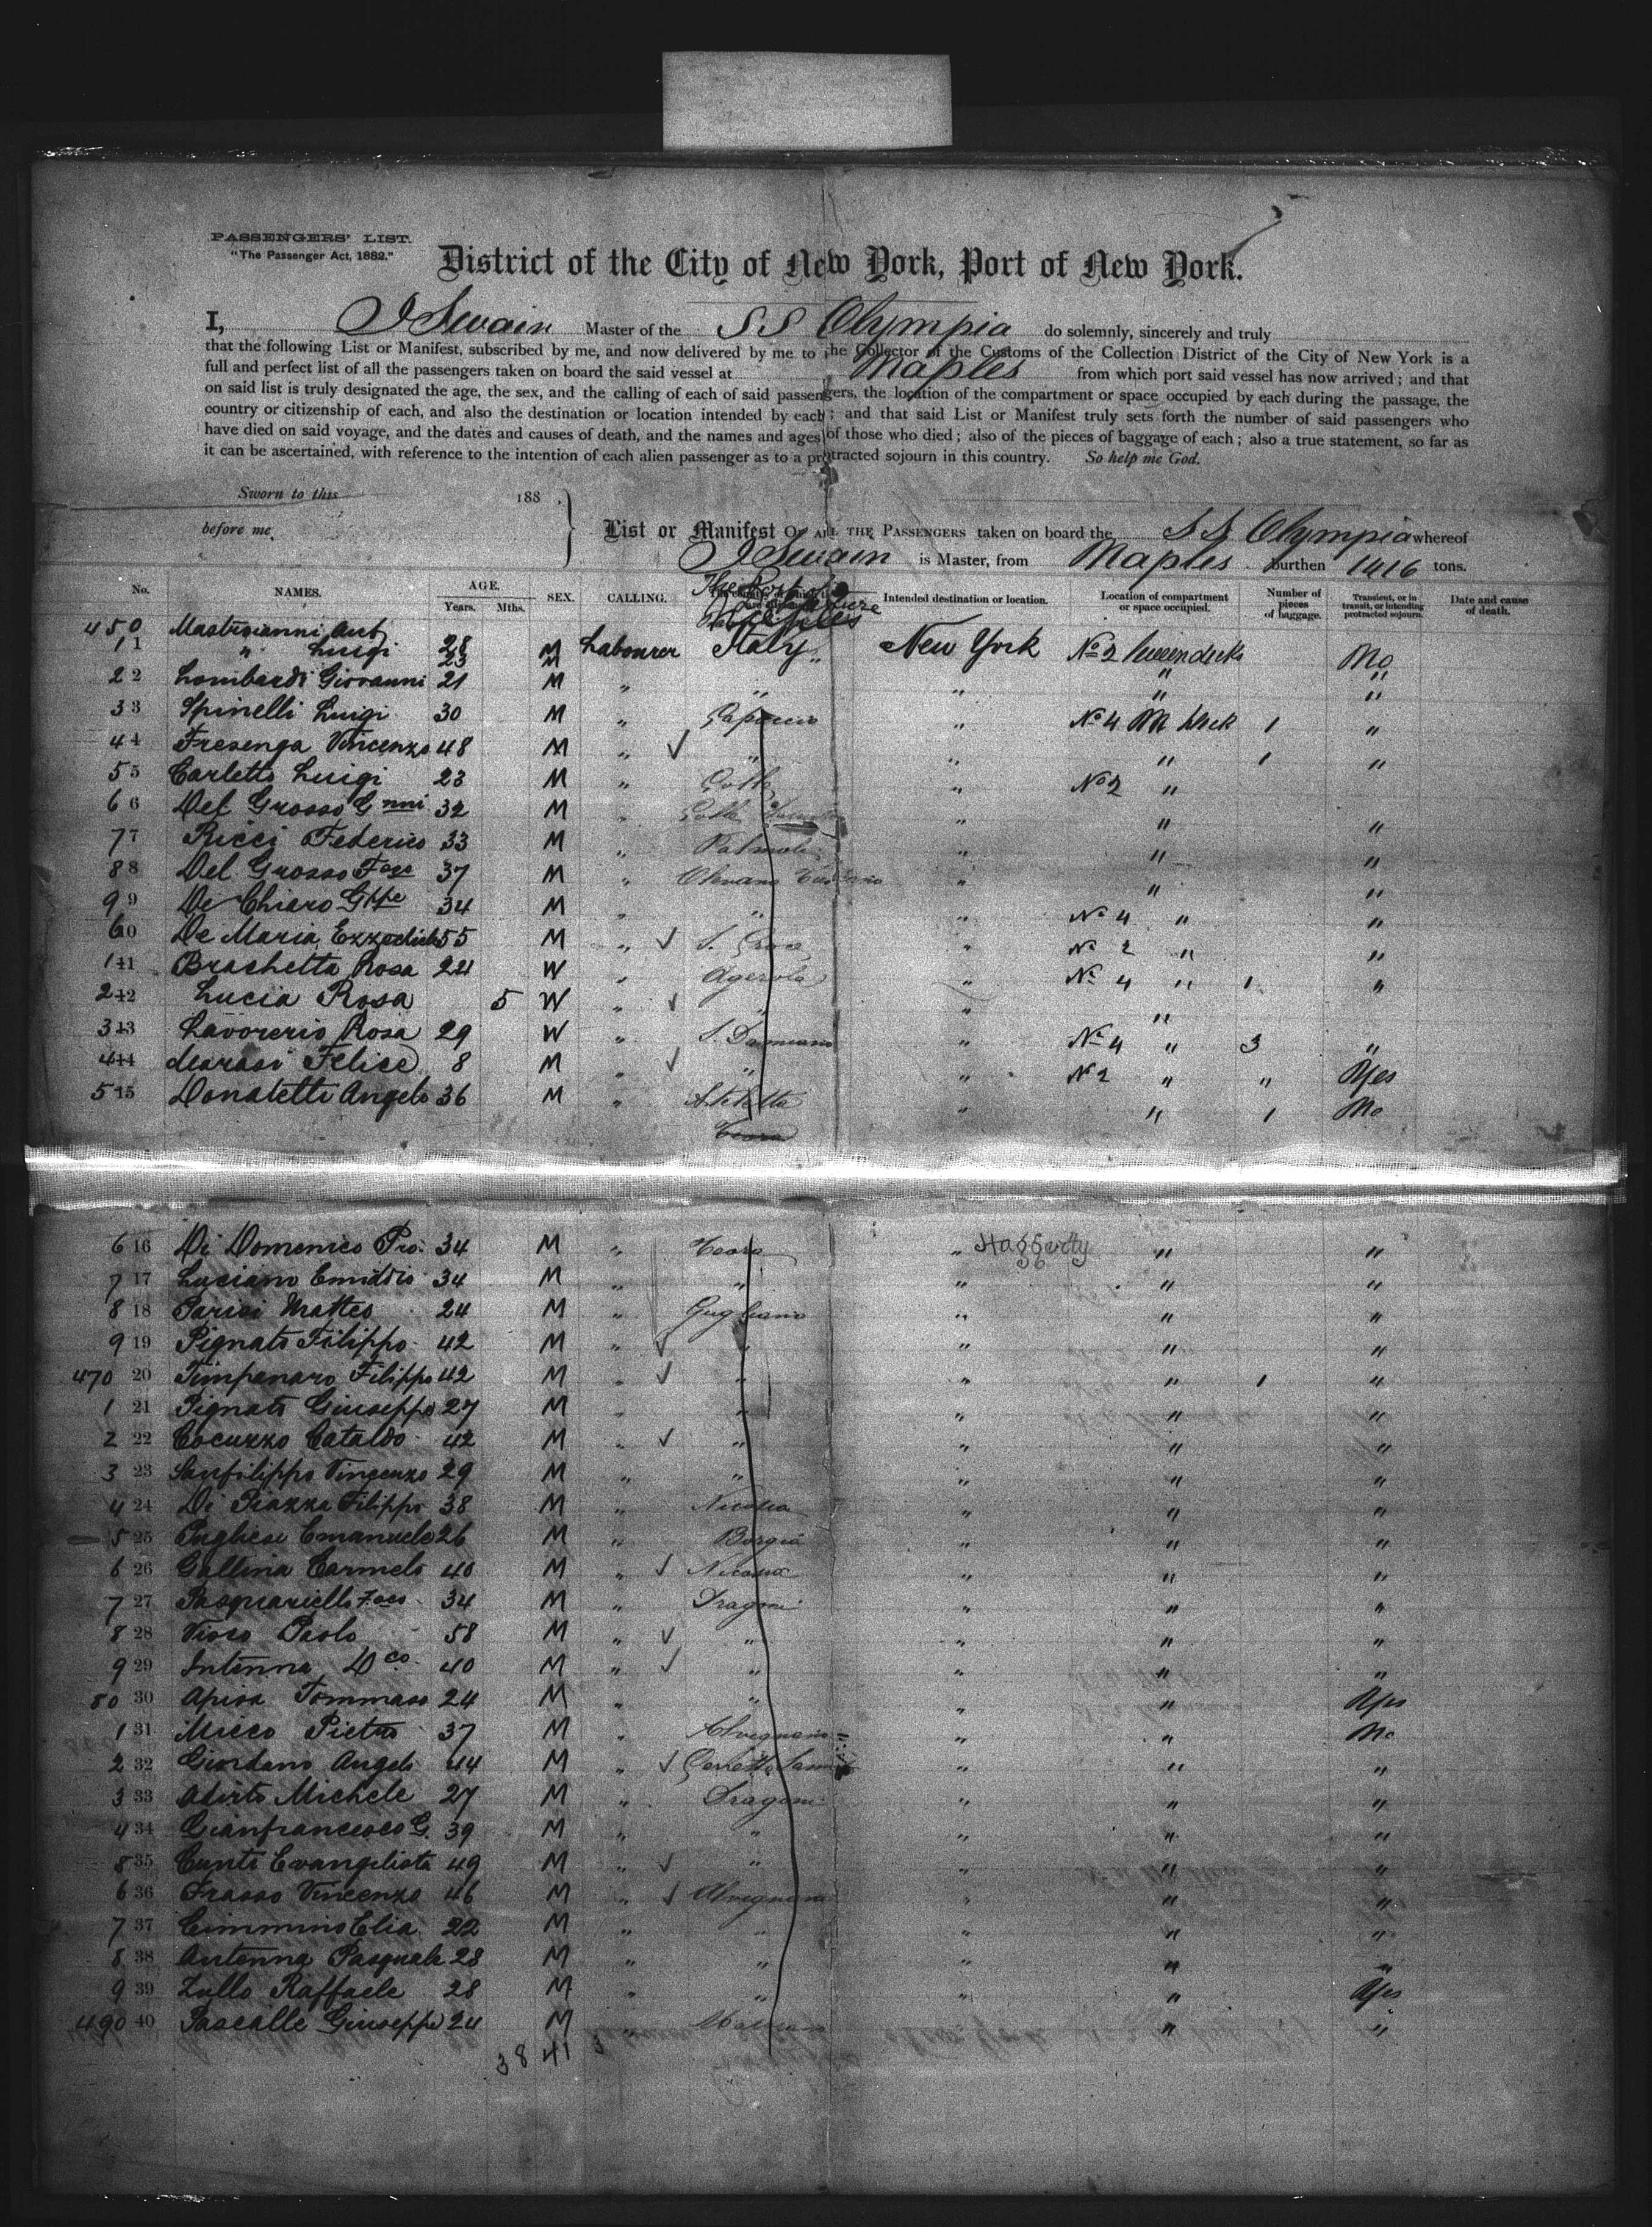 PASSENGERS' LIST.
"The Passenger Act, 1882."
District of the City of New York, Port of New York.
I, J Swain Master of the SS Olympia do solemnly, sincerely and truly
that the following List or Manifest, subscribed by me, and now delivered by me to the Collector of the Customs of the Collection District of the City of New York is a
full and perfect list of all the passengers taken on board the said vessel at Naples from which port said vessel has now arrived; and that
on said list is truly designated the age, the sex, and the calling of each of said passengers, the location of the compartment or space occupied by each during the passage, the
country or citizenship of each, and also the destination or location intended by each; and that said List or Manifest truly sets forth the number of said passengers who
have died on said voyage, and the dates and causes of death, and the names and ages of those who died; also of the pieces of baggage of each; also a true statement, so far as
it can be ascertained, with reference to the intention of each alien passenger as to a protracted sojourn in this country. So help me God.
Sworn to this 188 .
before me
List or Manifest OF ALL THE PASSENGERS taken on board the SS Olympia whereof
J Swain is Master, from Naples burthen 1416 tons.
No. NAMES. AGE. Years. Mths. SEX. CALLING. Intended destination or location. Location of compartment or space occupied. Number of pieces of baggage. Transient, or in transit, or intending protracted sojourn. Date and cause of death.
450 Mastroianni Ant 28 M Labourer Italy New York No 2 No
1 1 " Luigi 23 M " " "
2 2 Lombardi Giovanni 21 M " " " " "
3 3 Spinelli Luigi 30 M " " No 4 M Deck 1 "
4 4 Fresenga Vincenzo 48 M " ✓ " " " 1 "
5 5 Carletto Luigi 23 M " " No 2 "
6 6 Del Grosso Gnni 32 M " " " "
7 7 Ricci Federico 33 M " Palmoli " " "
8 8 Del Grosso Fsco 37 M " " " "
9 9 De Chiaro Gppe 34 M " " " No 4 " "
60 De Maria 55 M " ✓ S. Croce " No 2 " "
1 11 Brachetta Rosa 24 W " Agerola " No 4 " 1 "
2 12 Lucia Rosa 5 W " ✓ " "
3 13 Lavorerio Rosa 29 W " S. Damiano " No 4 " 3 "
4 14 Marasi Felice 8 M " ✓ " " No 2 " " Yes
5 15 Donatelli Angelo 36 M " " " 1 No
6 16 Di Domenico 34 M " Teora " Haggerty " "
7 17 Luciano Emiddio 34 M " " " " "
8 18 Parisi Matteo 24 M " Gugliano " " "
9 19 Pignato Filippo 42 M " ✓ " " " "
470 20 Timpanaro Filippo 42 M " ✓ " " " 1 "
1 21 Pignato Giuseppe 27 M " " " " "
2 22 Cocuzzo Cataldo 42 M " ✓ " " " "
3 23 Sanfilippo Vincenzo 29 M " " " " "
4 24 Di Piazza Filippo 38 M " Nicosia " " "
5 25 Pugliese Emanuele 26 M " Borgia " " "
6 26 Gallina Carmelo 40 M " ✓ Nicosia " " "
7 27 Pasquariello Fsco 34 M " Dragoni " " "
8 28 Paolo 58 M " ✓ " " " "
9 29 Dco 40 M " ✓ " " " "
80 30 Tommaso 24 M " " " " Yes
1 31 Micco Pietro 37 M " Alvignano " " No
2 32 Giordano Angelo 44 M " ✓ Cerreto " " "
3 33 Michele 27 M " Dragoni " " "
4 34 Cianfrancesco G. 39 M " " " " "
8 35 Cunto Evangelista 49 M " ✓ " " " "
6 36 Frasso Vincenzo 46 M " ✓ Alvignano " " "
7 37 Cimmino Elia 22 M " " " " "
8 38 Antenna Pasquale 28 M " " " " "
9 39 Zullo Raffaele 28 M " " " " Yes
490 40 Pascalle Giuseppe 24 M " " "
38 41 3